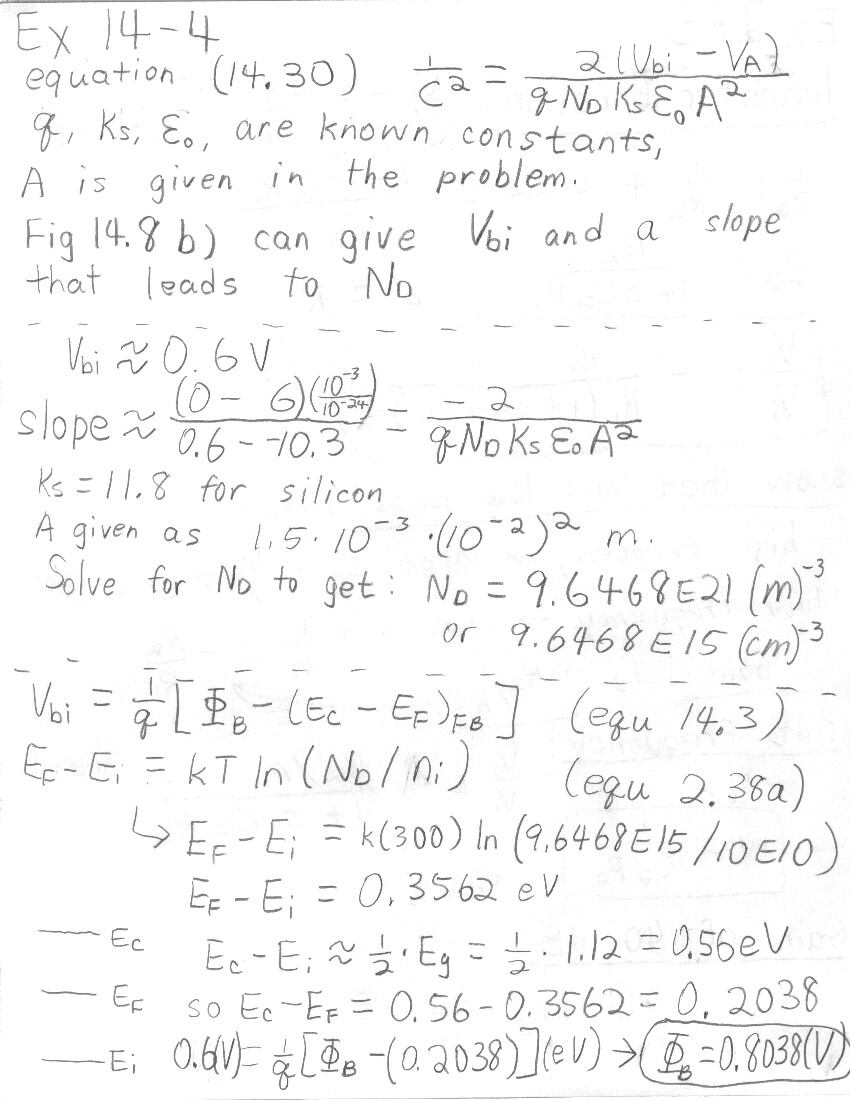 Ex 14-4
equation (14.30) 1/C² = 2(Vbi - VA)/(q ND Ks ε₀ A²)
q, Ks, ε₀, are known constants,
A is given in the problem.
Fig 14.8 b) can give Vbi and a slope
that leads to ND
Vbi ≈ 0.6 V
slope ≈ (0 - 6)(10⁻³/10⁻²⁴)/(0.6 - -10.3) = -2/(q ND Ks ε₀ A²)
Ks = 11.8 for silicon
A given as 1.5·10⁻³·(10⁻²)² m.
Solve for ND to get: ND = 9.6468E21 (m)⁻³
or 9.6468E15 (cm)⁻³
Vbi = 1/q [ΦB - (Ec - EF)FB] (equ 14.3)
EF - Ei = kT ln(ND/ni) (equ 2.38a)
↳ EF - Ei = k(300) ln (9.6468E15/10E10)
EF - Ei = 0.3562 eV
Ec Ec - Ei ≈ ½·Eg = ½·1.12 = 0.56eV
EF so Ec-EF = 0.56 - 0.3562 = 0.2038
Ei 0.6(V) = 1/q [ΦB - (0.2038)](eV) → ΦB = 0.8038(V)